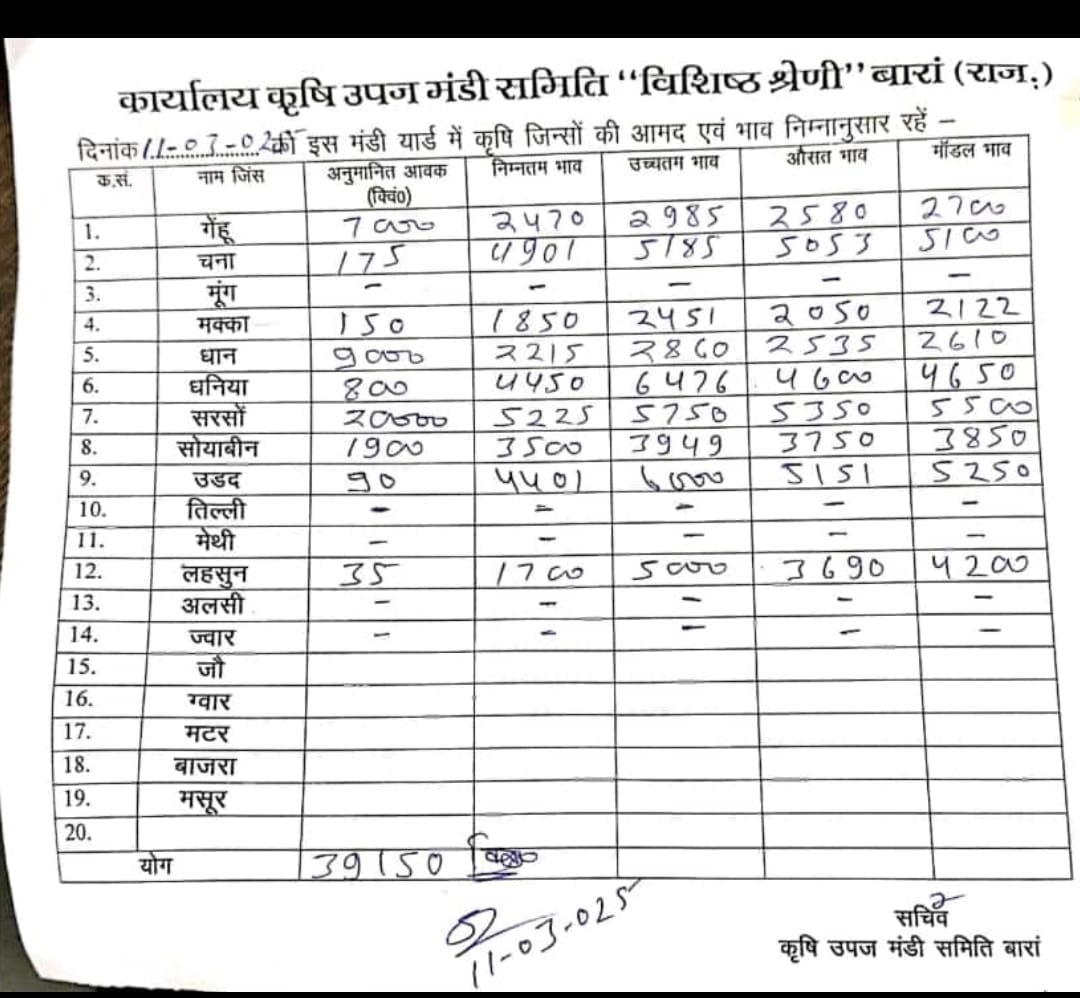 कार्यालय कृषि उपज मंडी समिति “विशिष्ठ श्रेणी” बारां (राज.)
दिनांक 11-03-025 को इस मंडी यार्ड में कृषि जिन्सों की आमद एवं भाव निम्नानुसार रहें –
क.सं. नाम जिंस अनुमानित आवक (क्विं0) निम्नतम भाव उच्चतम भाव औसत भाव मॉडल भाव
1. गेंहू 7000 2470 2985 2580 2700
2. चना 175 4901 5185 5053 5100
3. मूंग - - - - -
4. मक्का 150 1850 2451 2050 2122
5. धान 9000 2215 2860 2535 2610
6. धनिया 800 4450 6476 4600 4650
7. सरसों 20000 5225 5750 5350 5500
8. सोयाबीन 1900 3500 3949 3750 3850
9. उडद 90 4401 6000 5151 5250
10. तिल्ली - - - - -
11. मेथी - - - - -
12. लहसुन 35 1700 5000 3690 4200
13. अलसी - - - - -
14. ज्वार - - - - -
15. जौ
16. ग्वार
17. मटर
18. बाजरा
19. मसूर
20.
योग 39150
11-03-025
सचिव
कृषि उपज मंडी समिति बारां